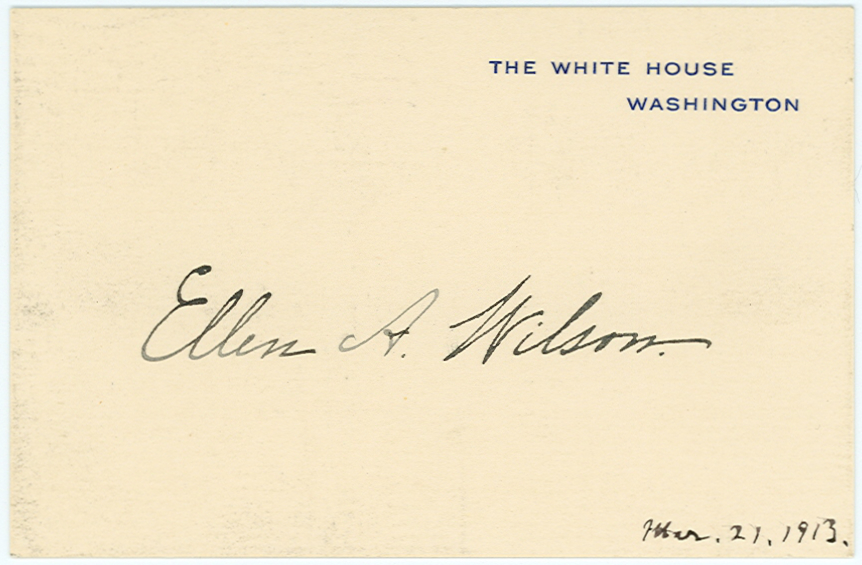 THE WHITE HOUSE
WASHINGTON
Ellen A. Wilson.
Mar. 21, 1913.